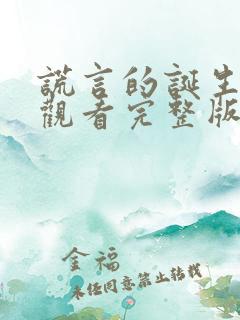 謊言的誕生
觀看完整版
金福
未经同意禁止转载